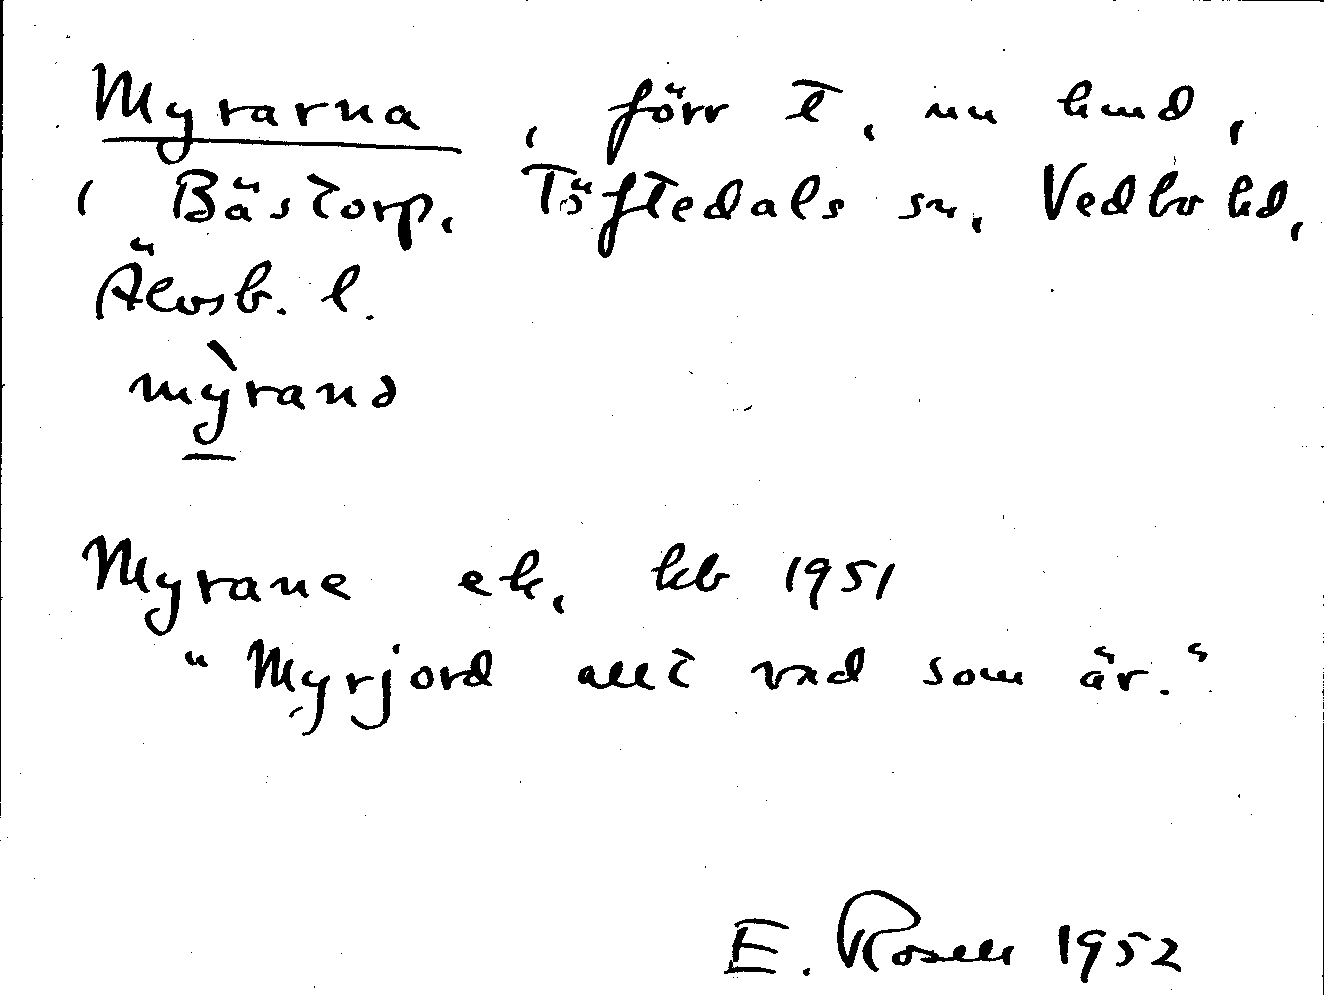 Myrarna, förr t, nu hmd,
i Bästorp, Töftedals sn, Vedbo hd,
Älvsb. l.
mỳranə
Myrane ek, kb 1951
"Myrjord allt vad som är."
E. Rosell 1952